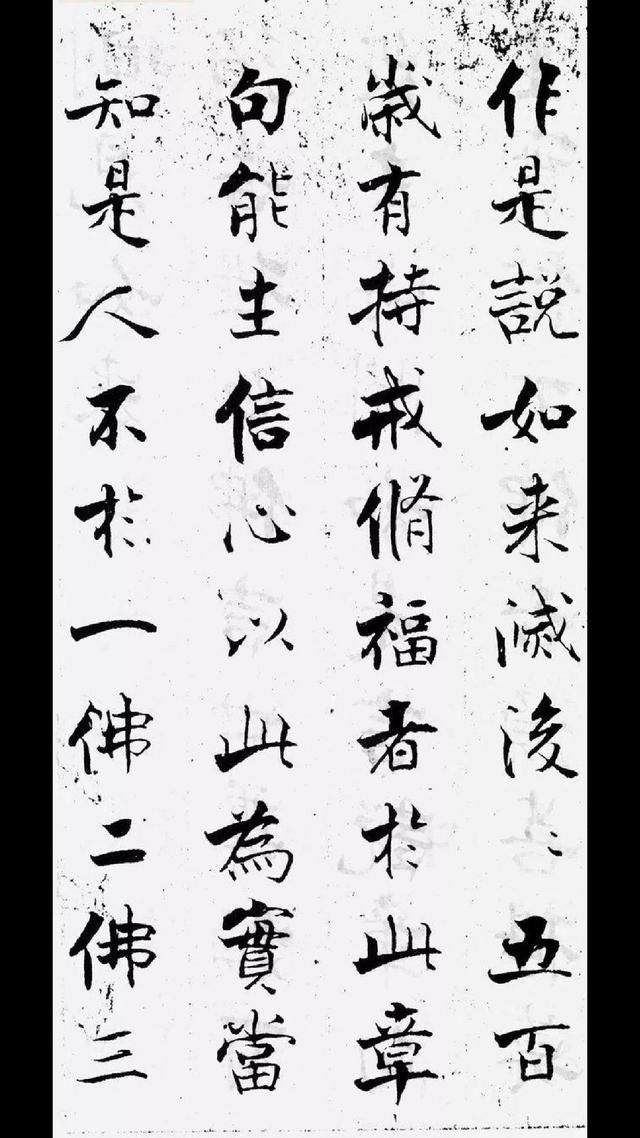 作是說如来滅後〻五百
歲有持戒脩福者於此章
句能生信心以此為實當
知是人不於一佛二佛三